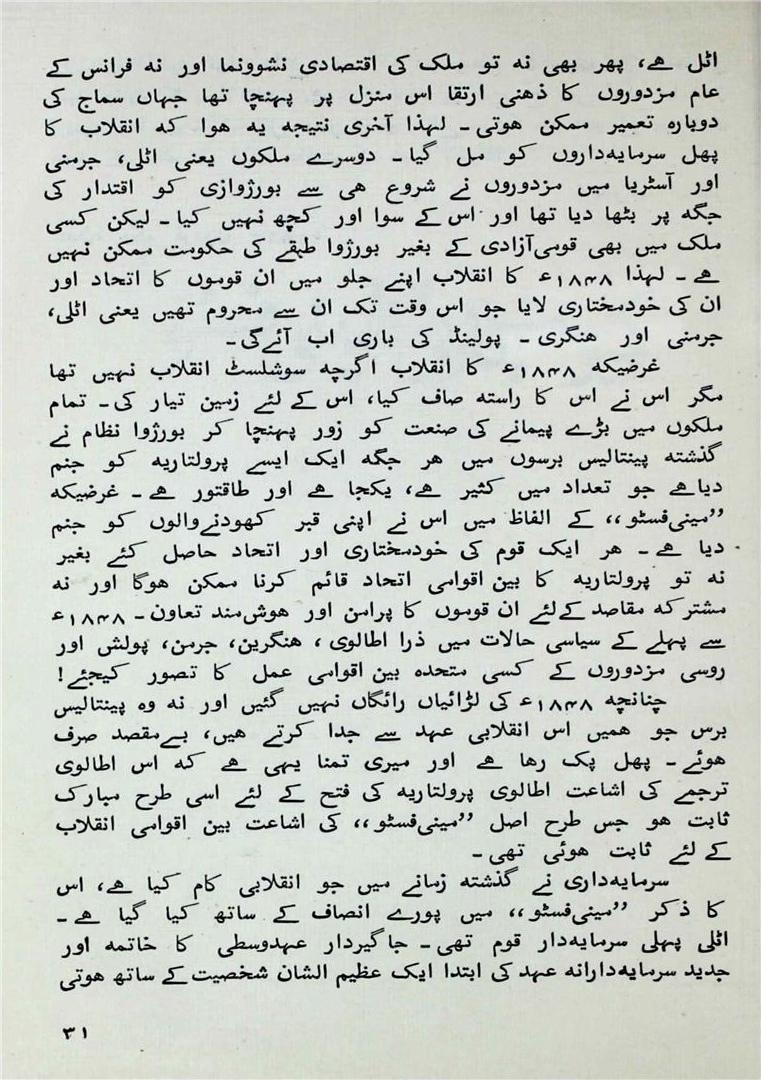 اٹل ہے، پھر بھی نہ تو ملک کی اقتصادی نشوونما اور نہ فرانس کے
عام مزدوروں کا ذہنی ارتقا اس منزل پر پہنچا تھا جہاں سماج کی
دوبارہ تعمیر ممکن ہوتی۔ لہذا آخری نتیجہ یہ ہوا کہ انقلاب کا
پھل سرمایہ‌داروں کو مل گیا۔ دوسرے ملکوں یعنی اٹلی، جرمنی
اور آسٹریا میں مزدوروں نے شروع ہی سے بورژوازی کو اقتدار کی
جگہ پر بٹھا دیا تھا اور اس کے سوا اور کچھ نہیں کیا۔ لیکن کسی
ملک میں بھی قومی آزادی کے بغیر بورژوا طبقے کی حکومت ممکن نہیں
ہے۔ لہذا ۱۸۴۸ء کا انقلاب اپنے جلو میں ان قوموں کا اتحاد اور
ان کی خودمختاری لایا جو اس وقت تک ان سے محروم تھیں یعنی اٹلی،
جرمنی اور ہنگری۔ پولینڈ کی باری اب آئے گی۔
غرضیکہ ۱۸۴۸ء کا انقلاب اگرچہ سوشلسٹ انقلاب نہیں تھا
مگر اس نے اس کا راستہ صاف کیا، اس کے لئے زمین تیار کی۔ تمام
ملکوں میں بڑے پیمانے کی صنعت کو زور پہنچا کر بورژوا نظام نے
گذشتہ پینتالیس برسوں میں ہر جگہ ایک ایسے پرولتاریہ کو جنم
دیا ہے جو تعداد میں کثیر ہے، یکجا ہے اور طاقتور ہے۔ غرضیکہ
”مینی فسٹو،، کے الفاظ میں اس نے اپنی قبر کھودنے والوں کو جنم
دیا ہے۔ ہر ایک قوم کی خودمختاری اور اتحاد حاصل کئے بغیر
نہ تو پرولتاریہ کا بین اقوامی اتحاد قائم کرنا ممکن ہوگا اور نہ
مشترکہ مقاصد کے لئے ان قوموں کا پرامن اور ہوش مند تعاون۔ ۱۸۴۸ء
سے پہلے کے سیاسی حالات میں ذرا اطالوی، ہنگرین، جرمن، پولش اور
روسی مزدوروں کے کسی متحدہ بین اقوامی عمل کا تصور کیجئے!
چنانچہ ۱۸۴۸ء کی لڑائیاں رائگاں نہیں گئیں اور نہ وہ پینتالیس
برس جو ہمیں اس انقلابی عہد سے جدا کرتے ہیں، بے مقصد صرف
ہوئے۔ پھل پک رہا ہے اور میری تمنا یہی ہے کہ اس اطالوی
ترجمے کی اشاعت اطالوی پرولتاریہ کی فتح کے لئے اسی طرح مبارک
ثابت ہو جس طرح اصل ”مینی فسٹو،، کی اشاعت بین اقوامی انقلاب
کے لئے ثابت ہوئی تھی۔
سرمایہ‌داری نے گذشتہ زمانے میں جو انقلابی کام کیا ہے، اس
کا ذکر ”مینی فسٹو،، میں پورے انصاف کے ساتھ کیا گیا ہے۔
اٹلی پہلی سرمایہ‌دار قوم تھی۔ جاگیردار عہدوسطی کا خاتمہ اور
جدید سرمایہ‌دارانہ عہد کی ابتدا ایک عظیم الشان شخصیت کے ساتھ ہوتی
۳۱